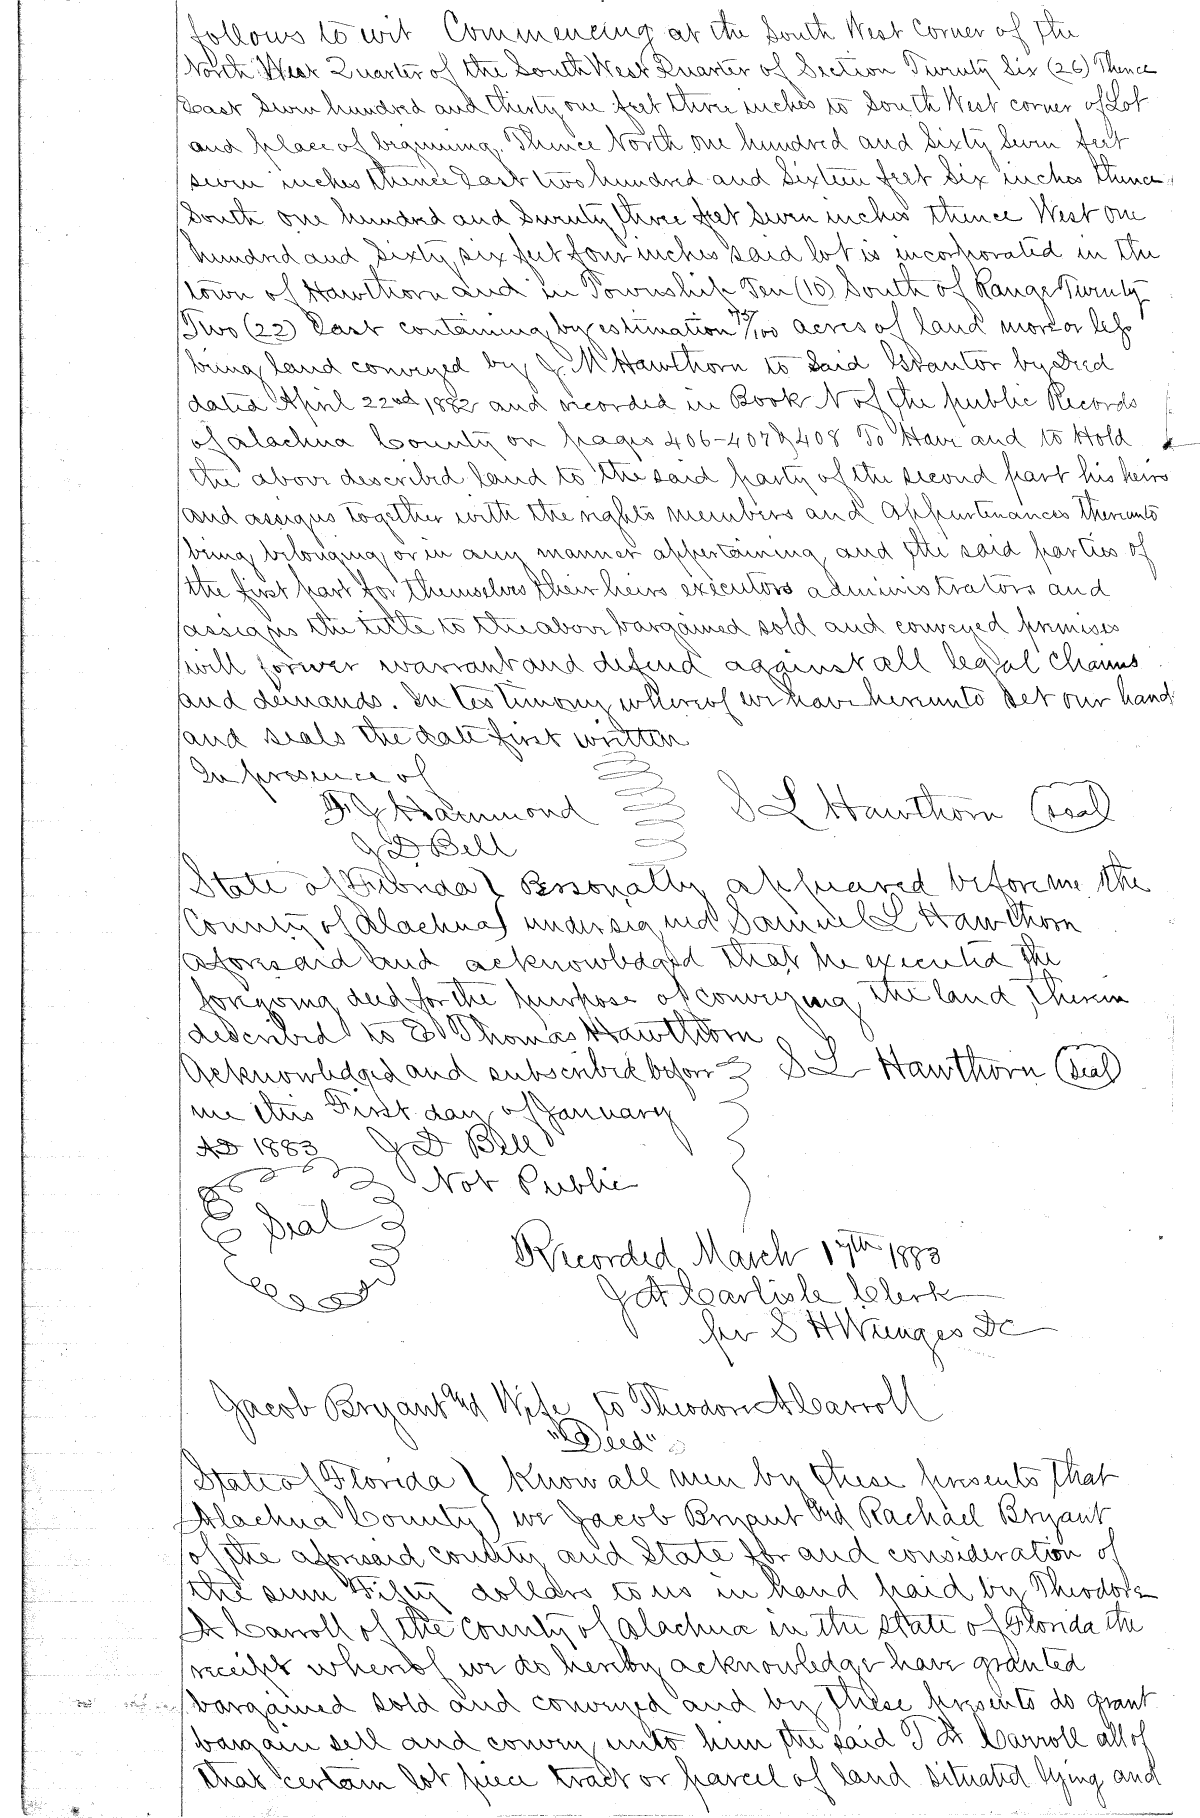 follows to wit Commencing at the South West Corner of the
North West Quarter of the South West Quarter of Section Twenty Six (26) Thence
East Seven hundred and thirty one feet three inches to South West corner of Lot
and place of beginning. Thence North one hundred and Sixty Seven feet
seven inches thence East two hundred and Sixteen feet Six inches thence
South one hundred and Seventy three feet Seven inches thence West one
hundred and Sixty six feet four inches said lot is incorporated in the
town of Hawthorn and in Township Ten (10) South of Range Twenty
Two (22) East containing by estimation 75/100 acres of land more or less
being land conveyed by J M Hawthorn to Said Grantor by Deed
dated April 22nd 1882 and recorded in Book N of the public Records
of Alachua County on pages 406-407 & 408 To Have and to Hold
the above described land to the said party of the second part his heirs
and assigns together with the rights members and appurtenances thereunto
being belonging or in any manner appertaining and the said parties of
the first part for themselves their heirs executors administrators and
assigns the title to the above bargained sold and conveyed premises
will forever warrant and defend against all legal Claims
and demands. In testimony whereof we have hereunto set our hand
and seals the date first written
In presence of
T. J Hammond S L Hawthorn (seal)
J D Bell
State of Florida } Personally appeared before me the
County of Alachua } undersigned Samuel L Hawthorn
aforesaid and acknowledged that he executed the
foregoing deed for the purpose of conveying the land therein
described to E Thomas Hawthorn
Acknowledged and subscribed before S L Hawthorn (Seal)
me this First day of January
AD 1883 J D Bell
Not Public
Seal
Recorded March 17th 1883
J A Carlisle Clerk
per S H Wienges DC
Jacob Bryant and Wife to Theodore A Carroll
"Deed"
State of Florida } Know all men by these presents that
Alachua County } we Jacob Bryant and Rachael Bryant
of the aforesaid county and State for and consideration of
the sum Fifty dollars to us in hand paid by Theodore
A Carroll of the county of Alachua in the State of Florida the
receipt whereof we do hereby acknowledge have granted
bargained sold and conveyed and by these presents do grant
bargain sell and convey unto him the said T A Carroll all of
that certain lot piece tract or parcel of land situated lying and